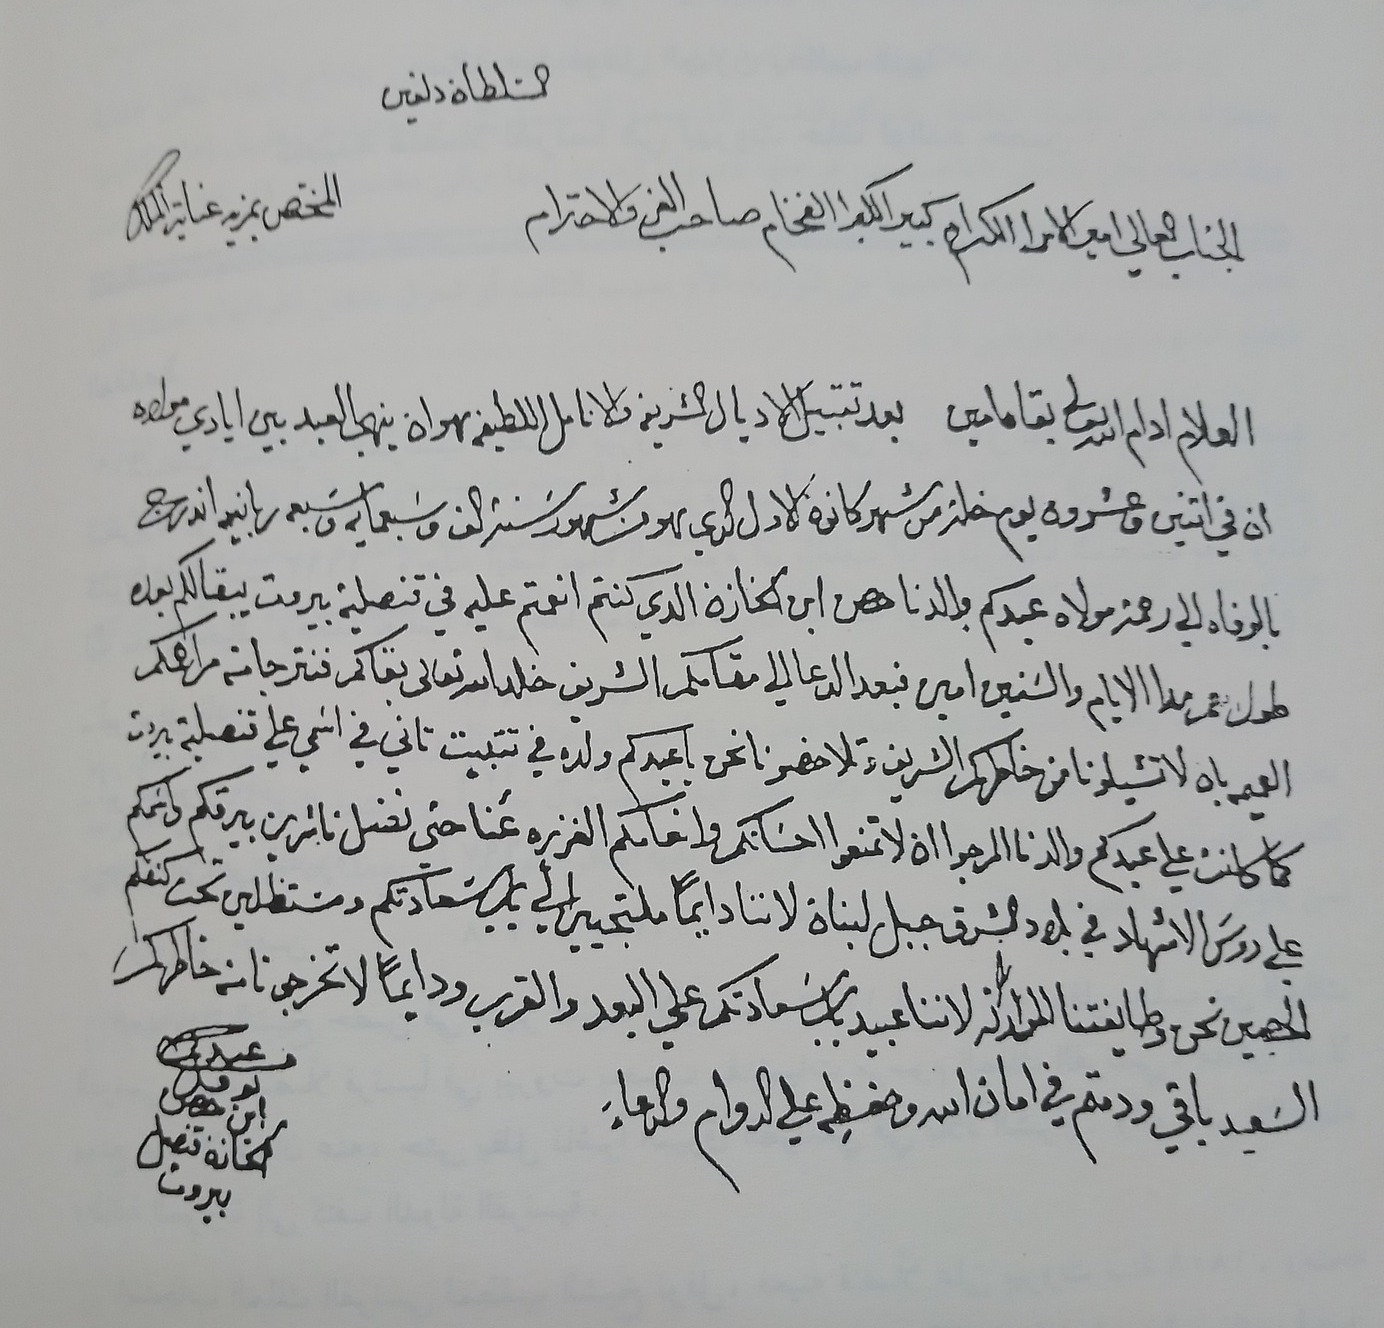 السلطاة دلفين
الجناب العالي امير الامرا الكرام كبير الكبرا الفخام صاحب العز والاحترام المختص بمزيد عناية الملك
العلام ادام الله تعالي بقاه امين بعد تقبيل الاديال الشريفه والانامل اللطيفه بهواة ينهي العبد بين ايادي مولاه
ان في اتنين وعشروه يوم خلة من شهر كانون الاول الدي بهو من شهور سنة الف وسبعمايه وسبعه رباينه اندرج
بالوفاه الي رحمة مولاه عبدكم والدنا حصن ابن الخازن الدي كنتم انعمتم عليه في قنصلية بيروت يبقالكم بعده
طول عمر مدا الايام والسنين امين فبعد الدعا الي مقامكم الشريف خلد الله تعالي بقاكم فنترجا منه مراحمكم
العميمه باه لا تشيلونا من خاطركم الشريف وتلاحضونا نحن يا عبدكم ولده في تتبيت تاني في اسمي علي قنصلية بيروت
كما كانت علي عبدكم والدنا المرجوا اه لا تمنعوا احسانكم وانعامكم الغزيره عنا حتي نفضل ناشرين بيرقكم واسمكم
علي روس الاشهاد في بلاد الشرق جبل لبناة لاننا دايمًا ملتجيين الي باب سعادتكم ومستظلين تحت كنفكم
الحصين نحن وطايفتنا الموارنه لاننا عبيد باب سعادتكم علي البعد والقرب ودايمًا لا تخرجونا من خاطركم
السعيد باقي ودمتم في امان الله وحفظه علي الدوام والدعاء
عبدكم
نوفل
ابن حصن
الخازن قنصل
بيروت